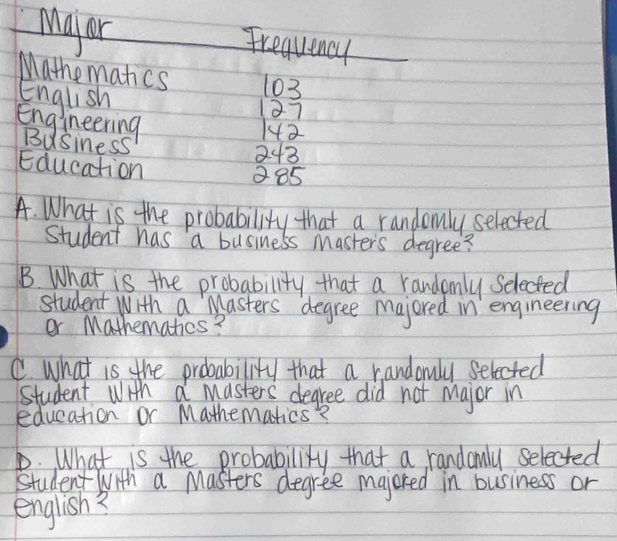 Major Frequency
Mathematics 103
English 127
Engineering 142
Business 243
Education 285
A. What is the probability that a randomly selected
student has a business master's degree?
B. What is the probability that a randomly selected
student with a Masters degree majored in engineering
or Mathematics?
C. What is the probability that a randomly selected
student with a Masters degree did not major in
education or Mathematics?
D. What is the probability that a randomly selected
student with a Masters degree majored in business or
english?